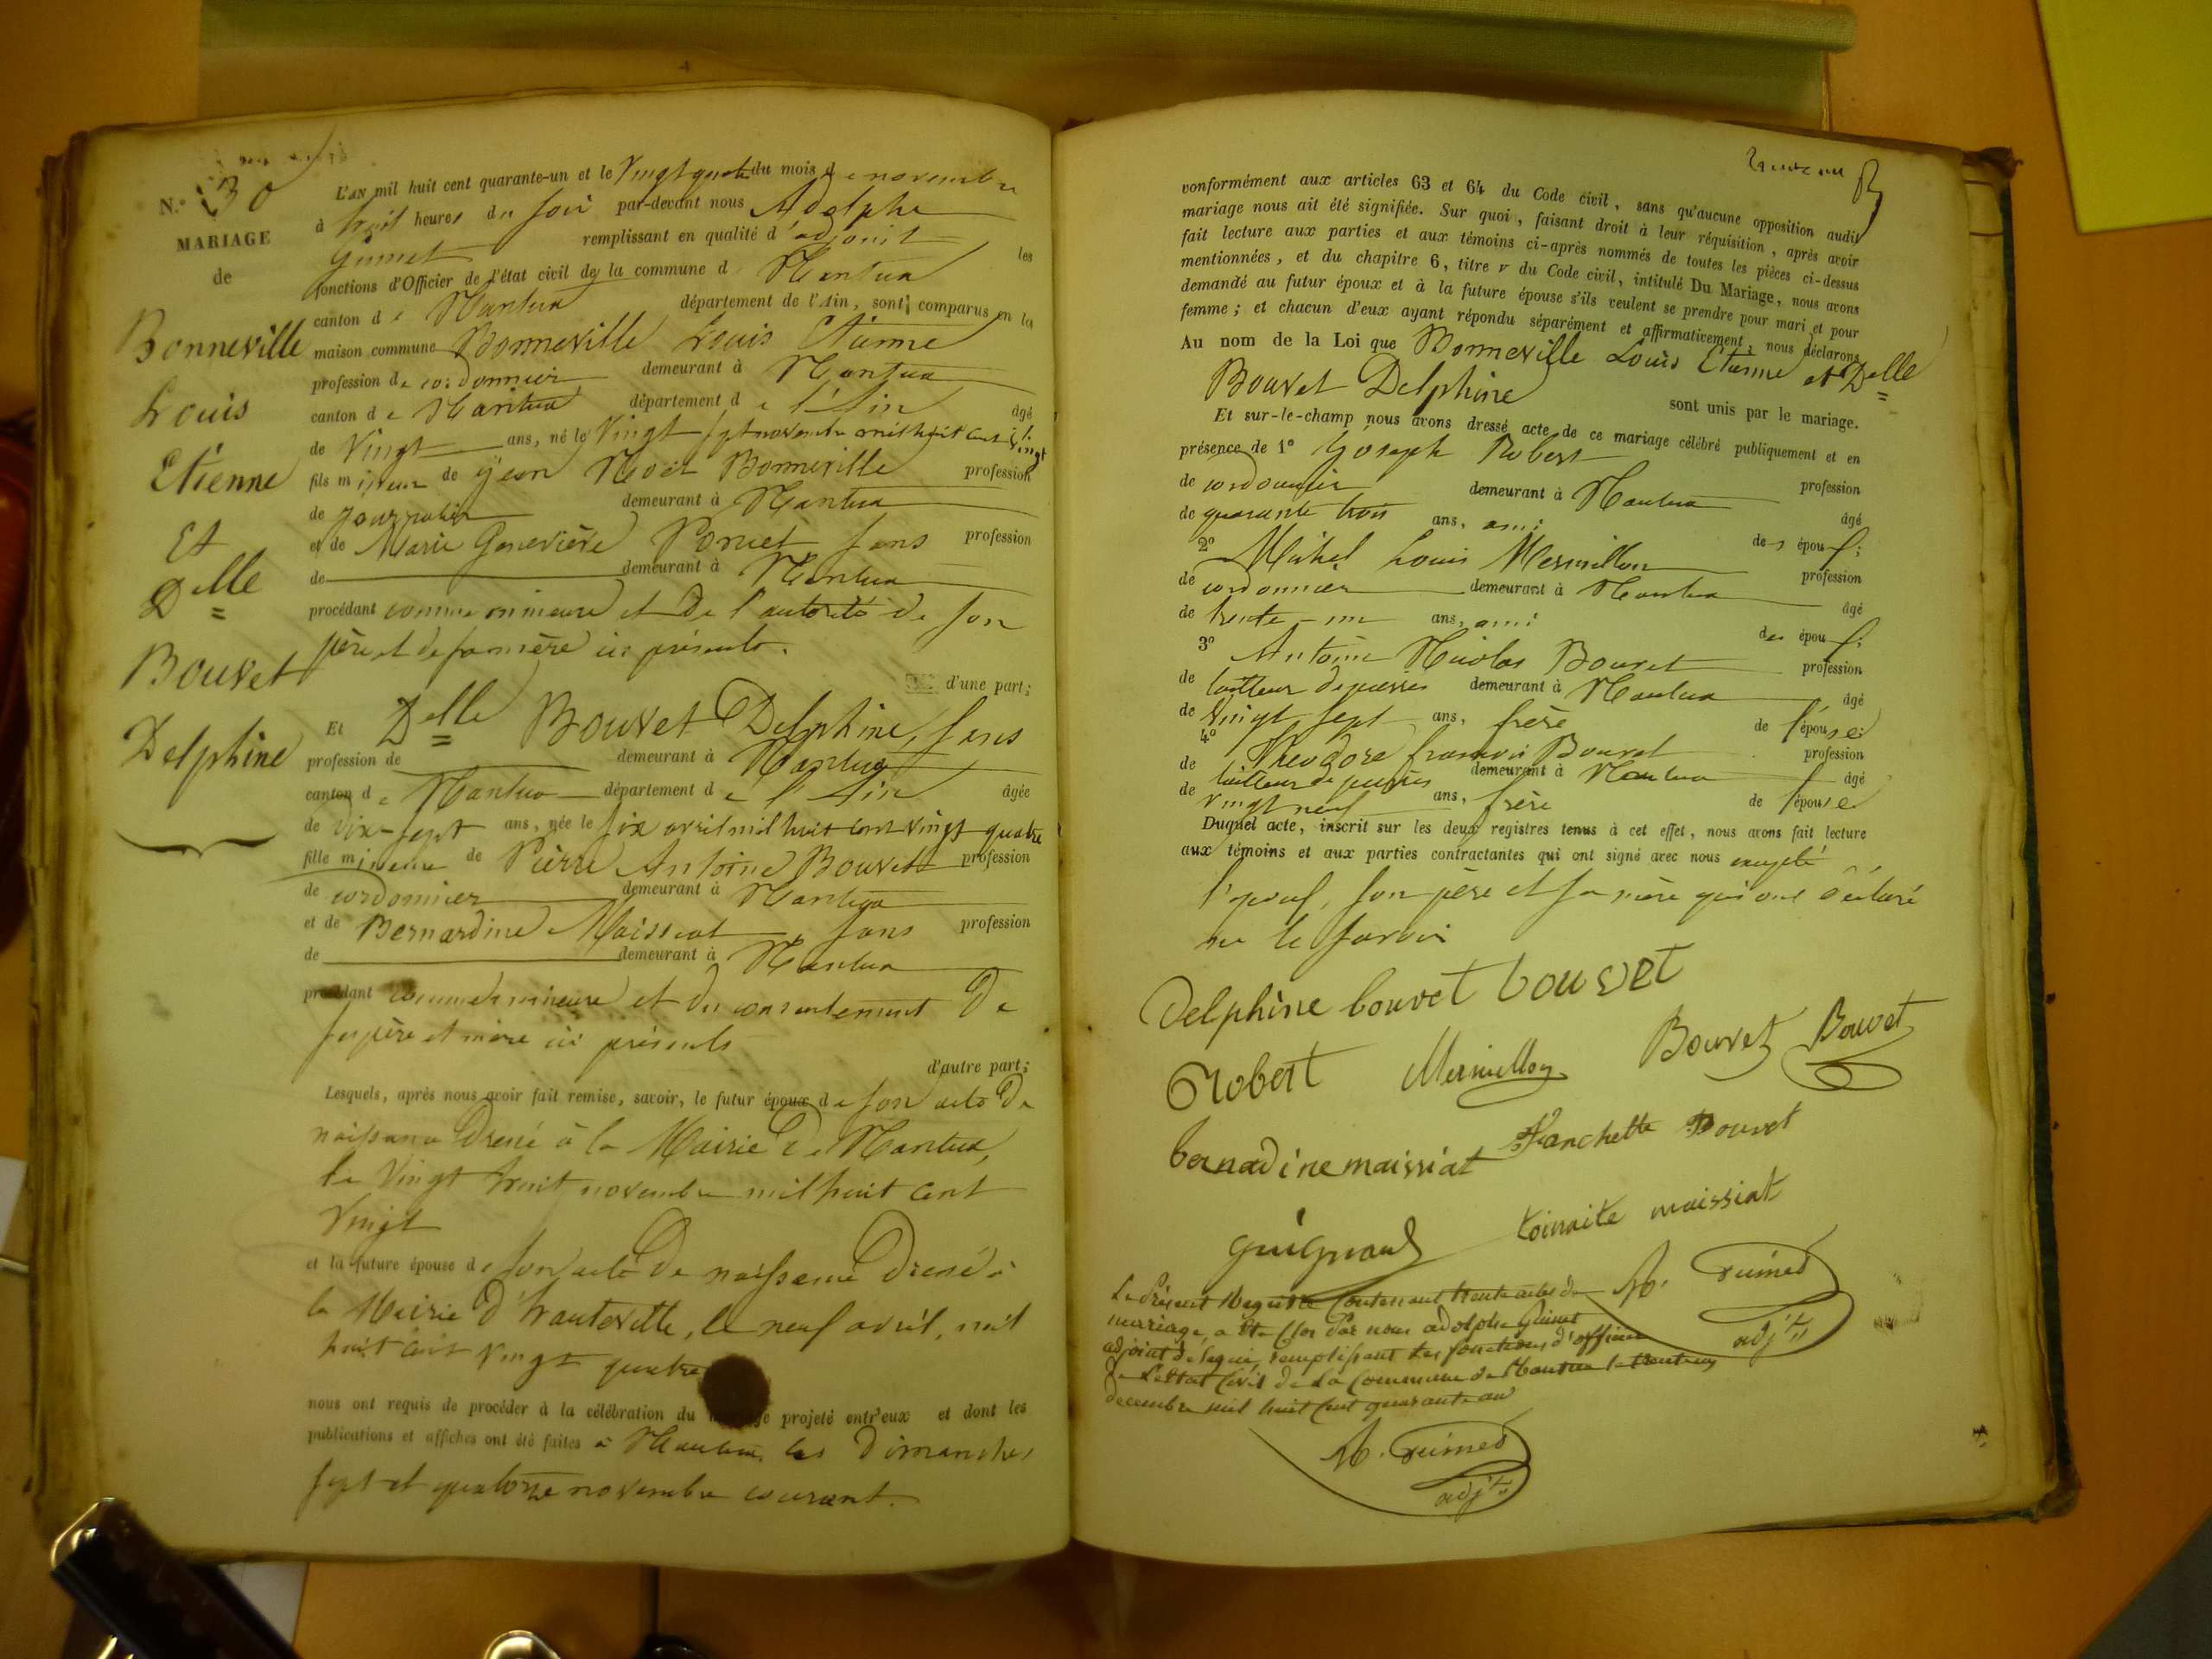 N.° 30
MARIAGE
de
Bonneville
Louis
Etienne
Et
Delle
Bouvet
Delphine
L'AN mil huit cent quarante-un et le Vingt quatre du mois de novembre
à huit heures du soir par-devant nous Adolphe
Guinet remplissant en qualité d'adjoint les
fonctions d'Officier de l'état civil de la commune de Nantua
canton de Nantua département de l'Ain, sont comparus en la
maison commune Bonneville Louis Etienne
profession de cordonnier demeurant à Nantua
canton de Nantua département de l'Ain âgé
de Vingt ans, né le Vingt sept novembre mil huit cent vingt
fils mineur de Jean Noël Bonneville profession
de journalier demeurant à Nantua
et de Marie Genevière Poncet sans profession
de demeurant à Nantua
procédant comme mineur et de l'autorité de son
père et de sa mère ici présents.
d'une part;
Et Delle Bouvet Delphine, sans
profession de demeurant à Nantua
canton de Nantua département de l'Ain âgée
de dix-sept ans, née le six avril mil huit cent vingt quatre
fille mineure de Pierre Antoine Bouvet profession
de cordonnier demeurant à Nantua
et de Bernardine Maissiat, sans profession
de demeurant à Nantua
procédant comme mineure et du consentement de
ses père et mère ici présents
d'autre part;
Lesquels, après nous avoir fait remise, savoir, le futur époux de son acte de
naissance dressé à la Mairie de Nantua,
le Vingt huit novembre mil huit cent
Vingt
et la future épouse de son acte de naissance dressé à
la Mairie d'hauteville, le neuf avril, mil
huit cent vingt quatre
nous ont requis de procéder à la célébration du projeté entr'eux et dont les
publications et affiches ont été faites à Nantua, les Dimanches
sept et quatorze novembre courant.
conformément aux articles 63 et 64 du Code civil, sans qu'aucune opposition audit
mariage nous ait été signifiée. Sur quoi, faisant droit à leur réquisition, après avoir
fait lecture aux parties et aux témoins ci-après nommés de toutes les pièces ci-dessus
mentionnées, et du chapitre 6, titre v du Code civil, intitulé Du Mariage, nous avons
demandé au futur époux et à la future épouse s'ils veulent se prendre pour mari et pour
femme; et chacun d'eux ayant répondu séparément et affirmativement, nous déclarons
Au nom de la Loi que Bonneville Louis Etienne et Delle
Bouvet Delphine sont unis par le mariage.
Et sur-le-champ nous avons dressé acte de ce mariage célébré publiquement et en
présence de 1° Joseph Robert profession
de cordonnier demeurant à Nantua âgé
de quarante trois ans, ami des époux;
2° Michel Louis Mermillon profession
de cordonnier demeurant à Nantua âgé
de trente-un ans, ami des époux;
3° Antoine Nicolas Bouvet profession
de tailleur de pierres demeurant à Nantua âgé
de Vingt sept ans, frère de l'épouse
4° Théodore francois Bouvet profession
de tailleur de pierres demeurant à Nantua âgé
de vingt neuf ans, frère de l'épouse
Duquel acte, inscrit sur les deux registres tenus à cet effet, nous avons fait lecture
aux témoins et aux parties contractantes qui ont signé avec nous excepté
l'époux, son père et sa mère qui ont déclaré
ne le savoir
Delphine bouvet bouvet
Robert Mermillon Bouvet Bouvet
bernadine maissiat Fanchette Bouvet
Guignard toinaite maissiat
A. Guinet
adjt
Le Présent Registre Contenant trente actes de
mariage, a Eté Clos Par nous adolphe Guinet
adjoint délégué, remplissant les fonctions d'officier
de L'etat Civil de La Commune de Nantua le trente un
decembre mil huit Cent quarante un
A. Guinet
adjt